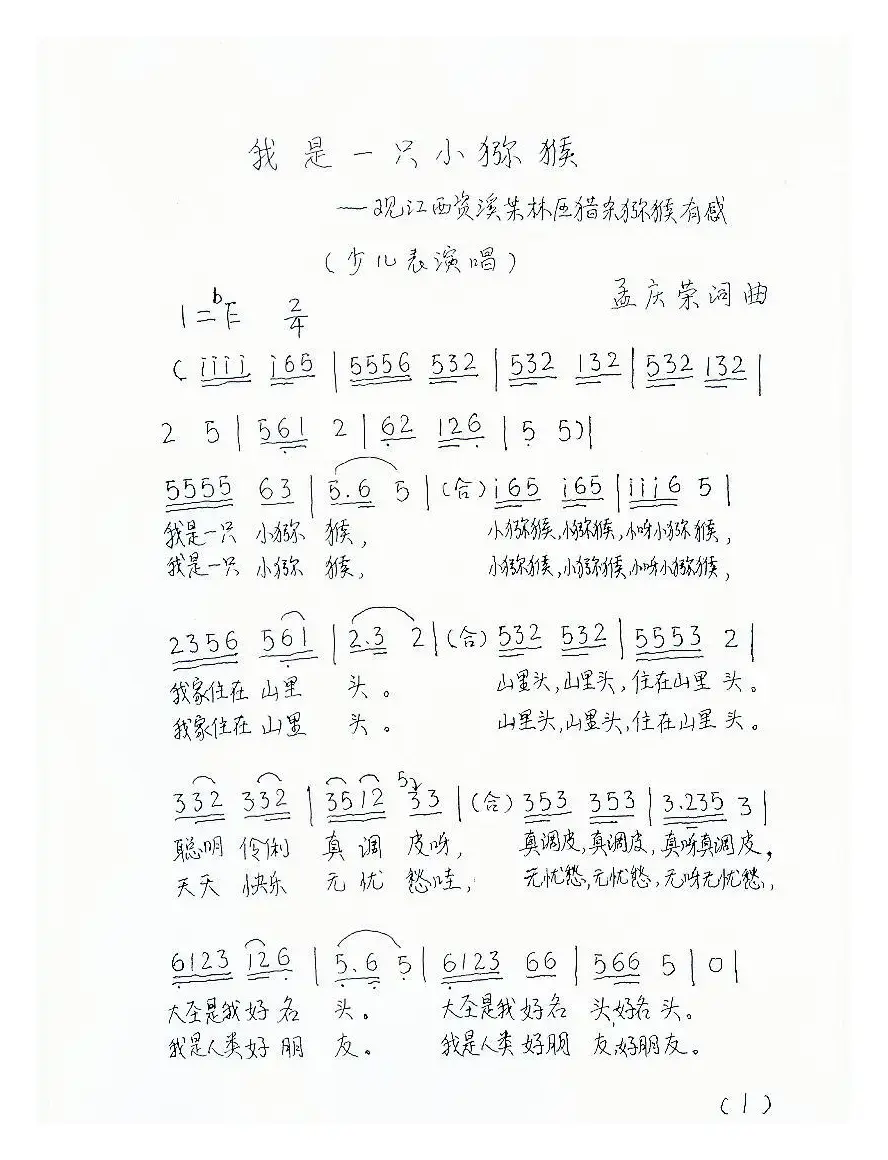 我是一只小猕猴
——观江西资溪某林区猎杀猕猴有感
（少儿表演唱）
孟庆荣词曲
1=bE 2/4
( i i i i i 6 5 | 5 5 5 6 5 3 2 | 5 3 2 1 3 2 | 5 3 2 1 3 2 |
2 5 | 5 6 1 2 | 6 2 1 2 6 | 5 5 ) |
5 5 5 5 6 3 | 5. 6 5 | (合) i 6 5 i 6 5 | i i i 6 5 |
我是一只 小猕 猴， 小猕猴,小猕猴,小呀小猕猴，
我是一只 小猕 猴， 小猕猴,小猕猴,小呀小猕猴，
2 3 5 6 5 6 1 | 2. 3 2 | (合) 5 3 2 5 3 2 | 5 5 5 3 2 |
我家住在 山里 头。 山里头,山里头,住在山里 头。
我家住在 山里 头。 山里头,山里头,住在山里 头。
3 3 2 3 3 2 | 3 5 1 2 5 3 3 | (合) 3 5 3 3 5 3 | 3. 2 3 5 3 |
聪明 伶俐 真 调 皮呀， 真调皮,真调皮,真呀真调皮，
天天 快乐 无 忧 愁哇， 无忧愁,无忧愁,无呀无忧愁，
6 1 2 3 1 2 6 | 5. 6 5 | 6 1 2 3 6 6 | 5 6 6 5 | 0 |
大圣是我 好 名 头。 大圣是我 好名 头,好名 头。
我是人类 好 朋 友。 我是人类 好朋 友,好朋 友。
(1)